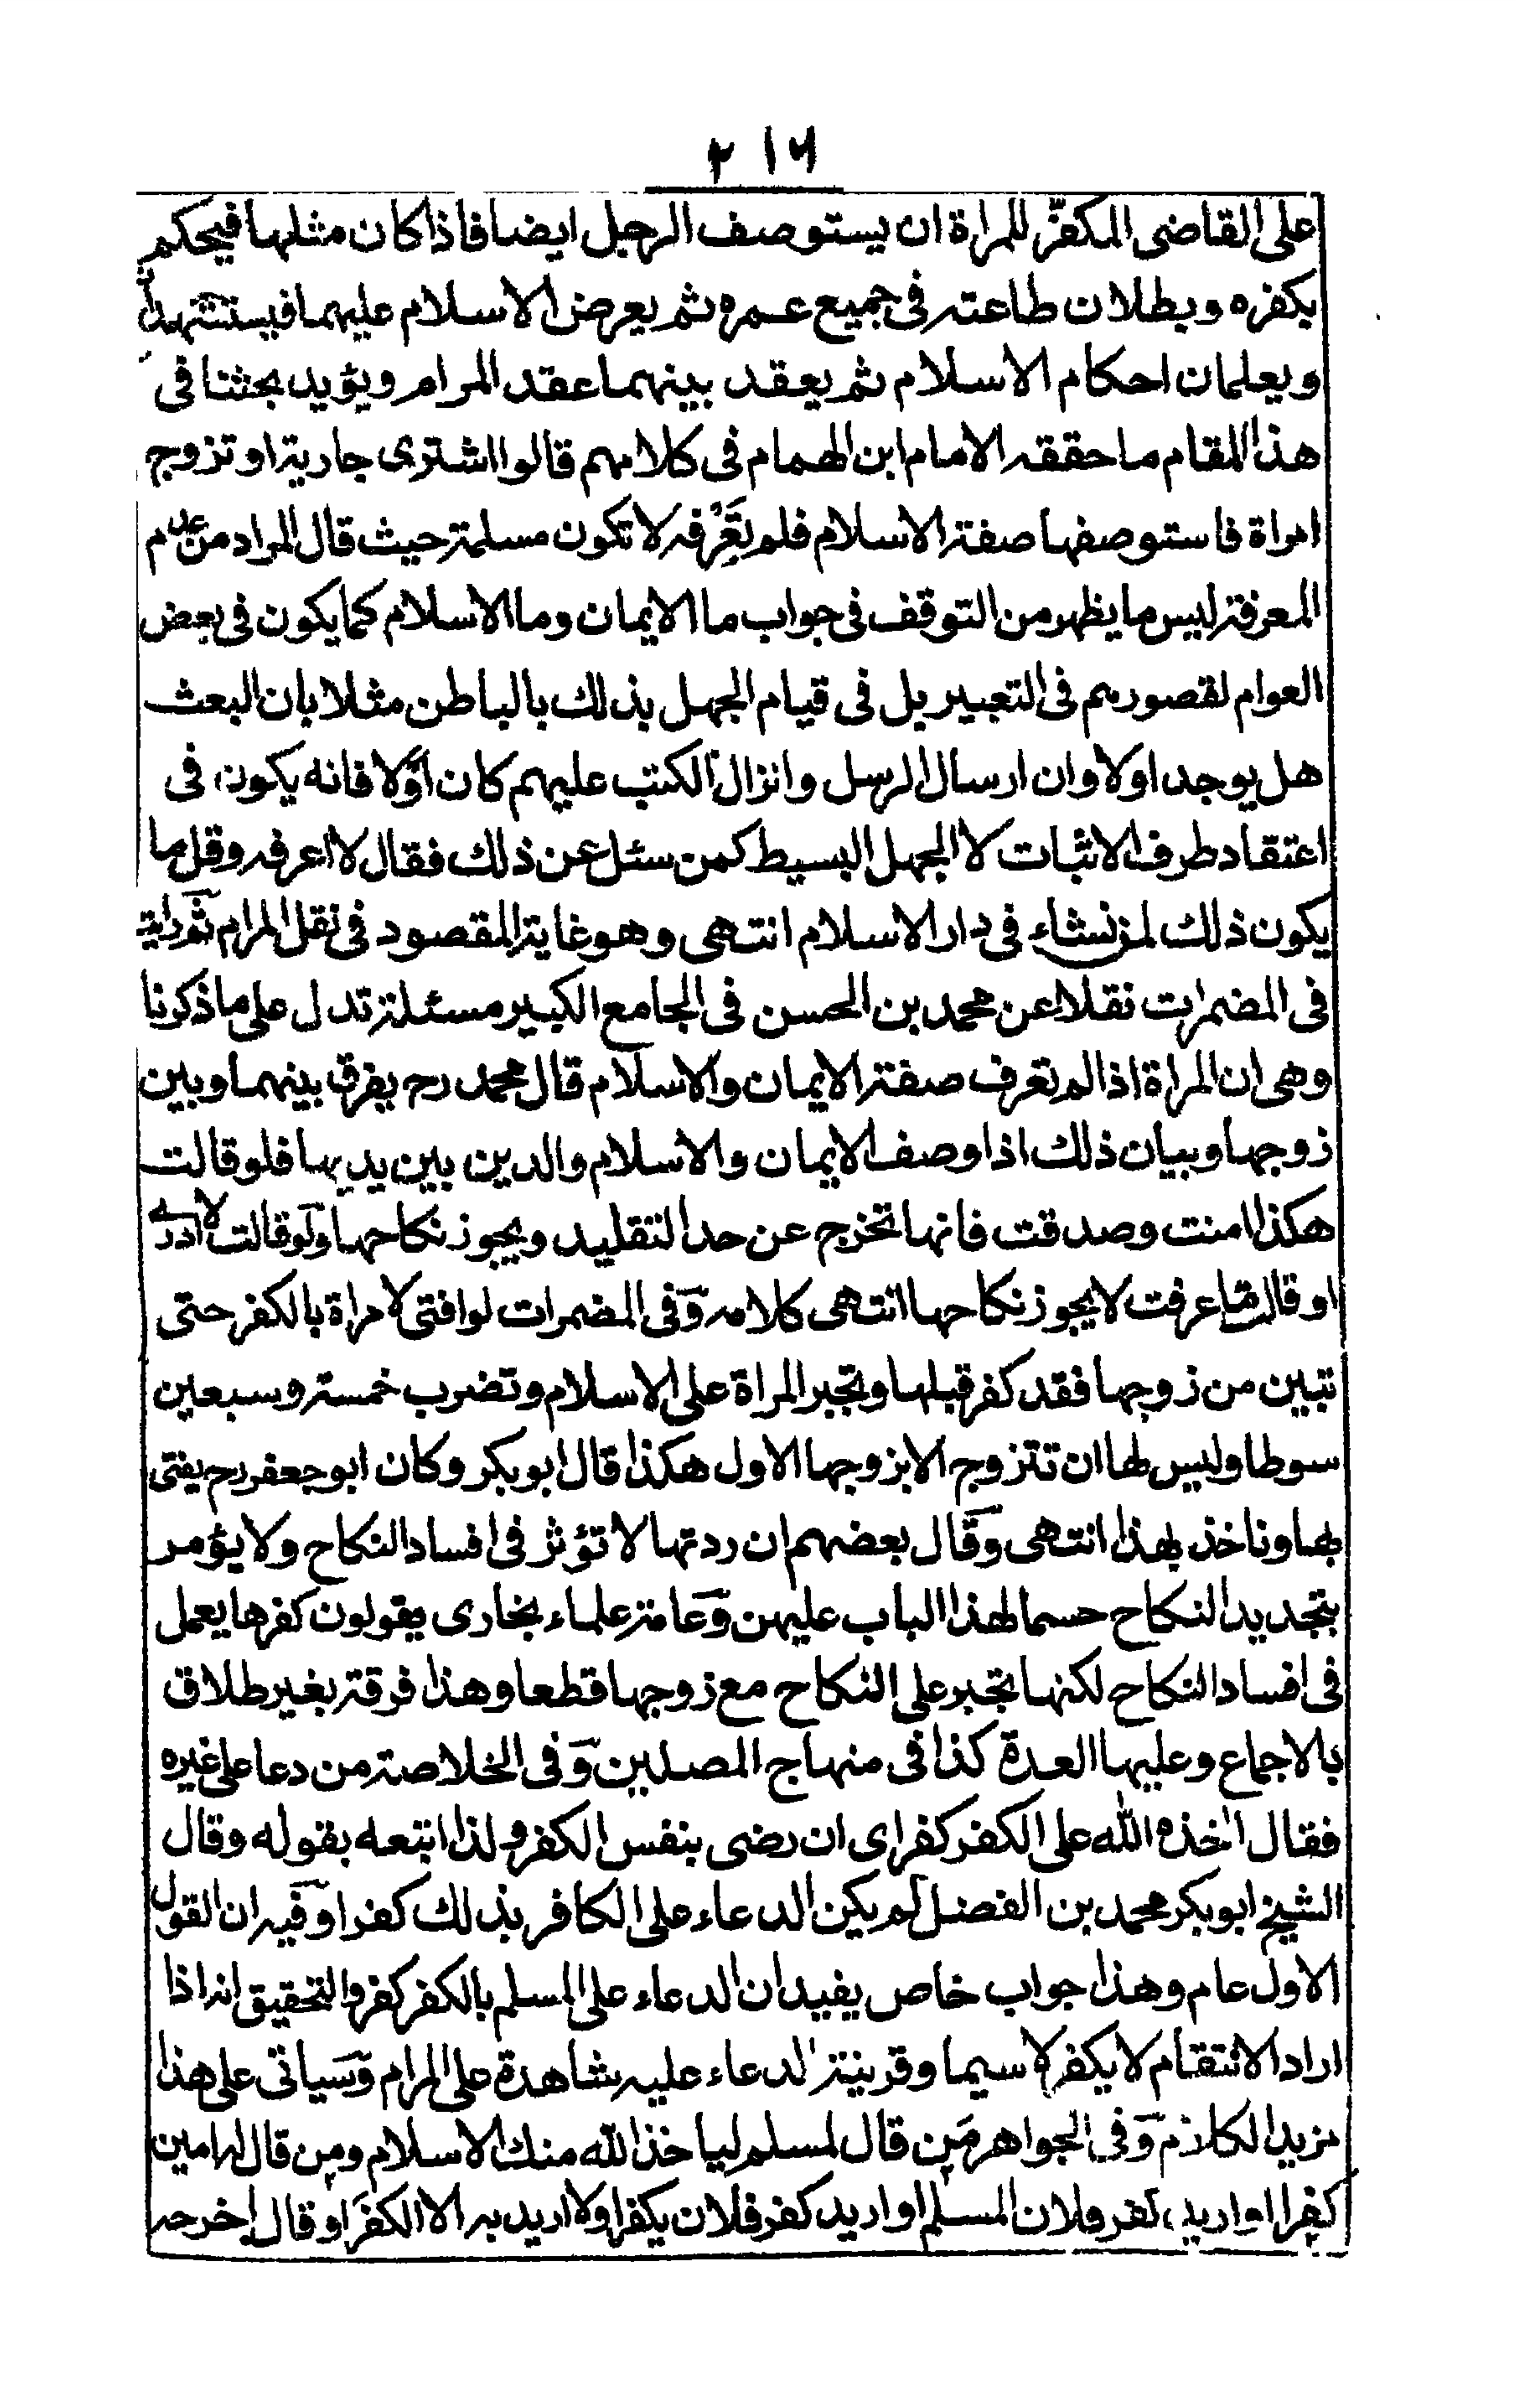 ٢١٦
على القاضى المكفّر للمراة ان يستوصف الرجل ايضا فاذا كان مثلها فيحكم
بكفره وبطلان طاعته فى جميع عمره ثم يعرض الاسلام عليهما
ويعلمان احكام الاسلام ثم يعقد بينهما عقد المرام ويؤيد بحثنا فى
هذا المقام ما حققه الامام ابن الهمام فى كلامهم قالوا اشترى جارية او تزوج
امراة فاستوصفها صفة الاسلام فلم تعرفه لا تكون مسلمة حيث قال المراد من عدم
المعرفة ليس ما يظهر من التوقف فى جواب ما الايمان وما الاسلام كما يكون فى بعض
العوام لقصورهم فى التعبير بل فى قيام الجهل بذلك بالباطن مثلا بان البعث
هل يوجد اولا وان ارسال الرسل وانزال الكتب عليهم كان اولا فانه يكون فى
اعتقاد طرف الاثبات لا الجهل البسيط كمن سئل عن ذلك فقال لا اعرفه وقل ما
يكون ذلك لمن نشاء فى دار الاسلام انتهى وهو غاية المقصود فى نقل المرام ثم رايت
فى المضمرات نقلا عن محمد بن الحسن فى الجامع الكبير مسئلة تدل على ما ذكرنا
وهى ان المراة اذا لم تعرف صفة الايمان والاسلام قال محمد رح يفرق بينهما وبين
زوجها وبيان ذلك اذا وصف الايمان والاسلام والدين بين يديها فلو قالت
هكذا امنت وصدقت فانها تخرج عن حد التقليد ويجوز نكاحها ولو قالت لا ادرى
او قالت ما عرفت لا يجوز نكاحها انتهى كلامه وفى المضمرات لو افتى لامراة بالكفر حتى
تبين من زوجها فقد كفر قبلها وتجبر المراة على الاسلام وتضرب خمسة وسبعين
سوطا وليس لها ان تتزوج الا بزوجها الاول هكذا قال ابو بكر وكان ابو جعفر رح يفتى
بها وناخذ بهذا انتهى وقال بعضهم ان ردتها لا تؤثر فى افساد النكاح ولا يؤمر
بتجديد النكاح حسما لهذا الباب عليهن وعامة علماء بخارى يقولون كفرها يعمل
فى افساد النكاح لكنها تجبر على النكاح مع زوجها قطعا وهذا فرقة بغير طلاق
بالاجماع وعليها العدة كذا فى منهاج المصلين وفى الخلاصة من دعا على غيره
فقال اخذه الله على الكفر كفر اى ان رضى بنفس الكفر ولذا اتبعه بقوله وقال
الشيخ ابو بكر محمد بن الفضل لم يكن الدعاء على الكافر بذلك كفرا وفيه ان القول
الاول عام وهذا جواب خاص يفيد ان الدعاء على المسلم بالكفر كفر والتحقيق انه اذا
اراد الانتقام لا يكفر لا سيما وقرينة الدعاء عليه شاهدة على المرام وسياتى على هذا
مزيد الكلام وفى الجواهر من قال لمسلم لياخذ الله منك الاسلام ومن قال له امين
كفرا او اريد كفر فلان المسلم او اريد كفر فلان يكفر اولا اريد به الا الكفر او قال اخرجه